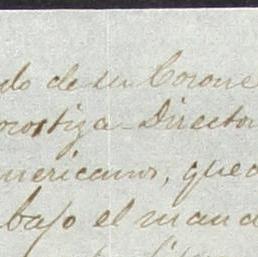 do de su Corone
ocostiza Director
mericanos, qued
bajo el manda